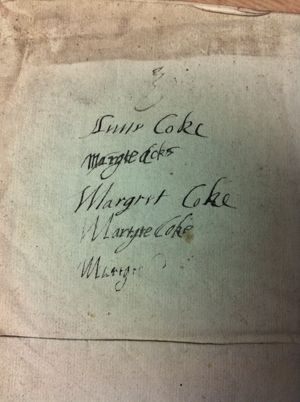 Anne Coke
Margre Coks
Margret Coke
Margrte Coke
Margre